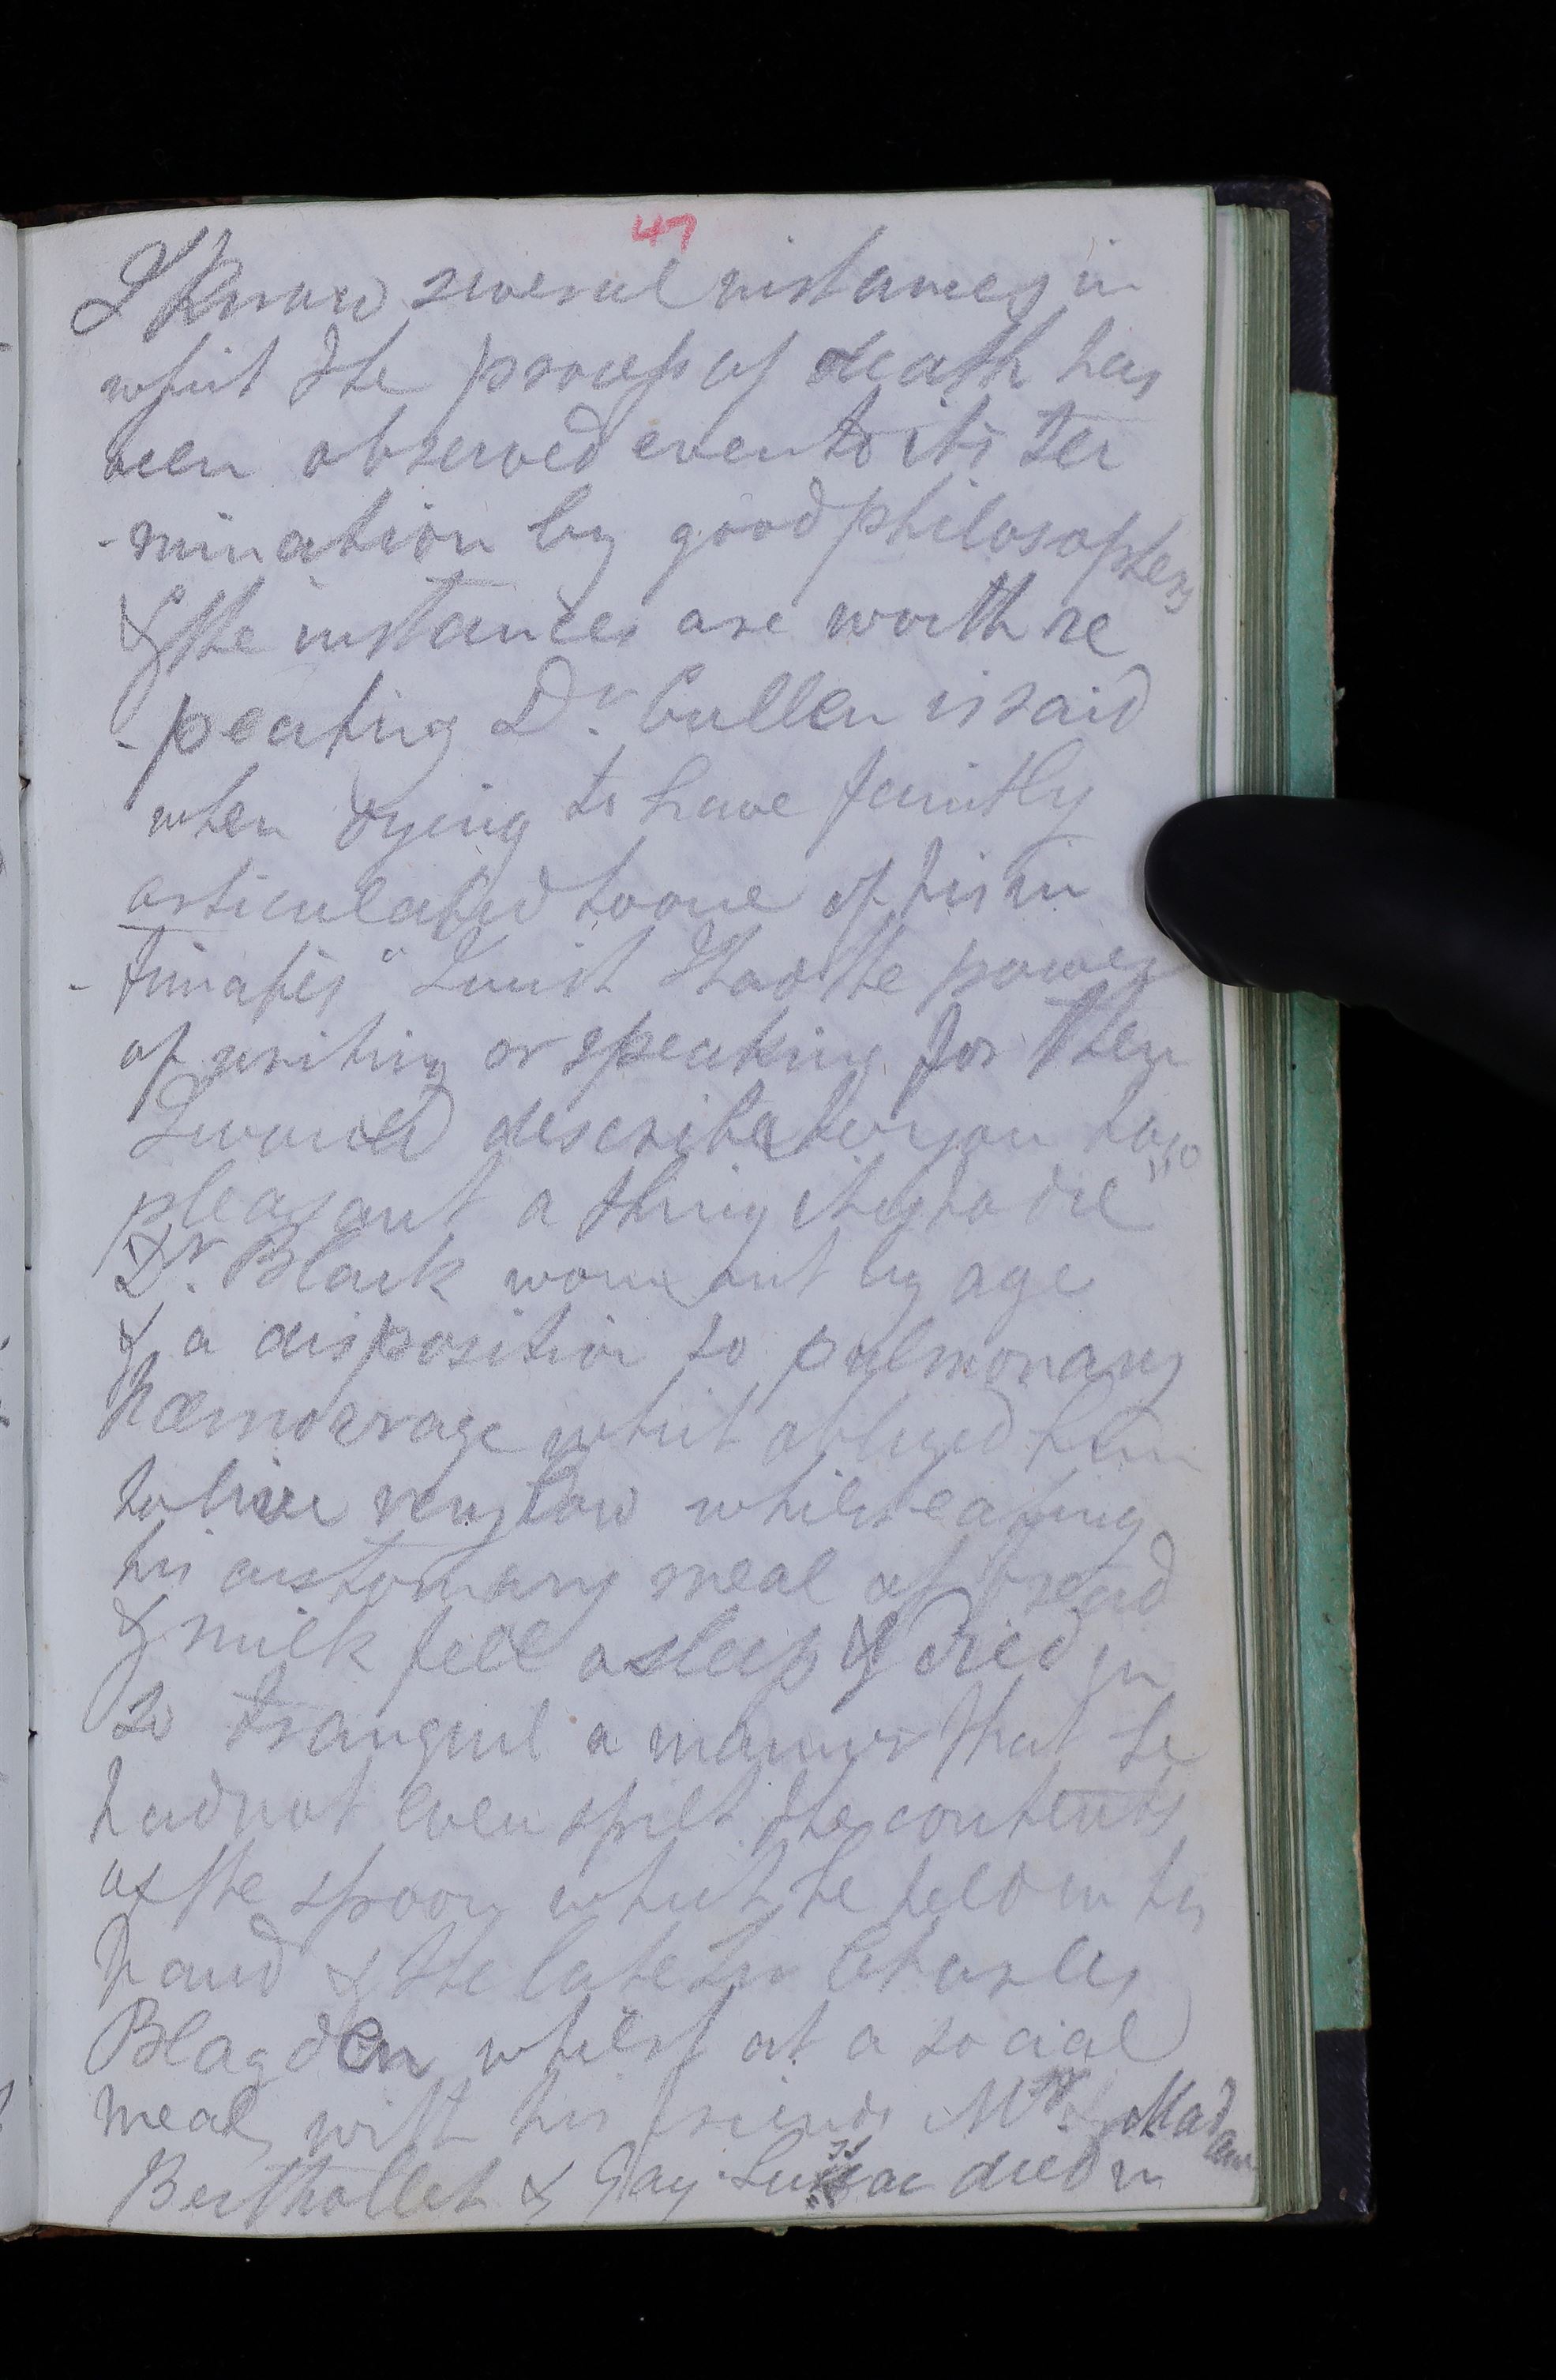 47
I know several instances in
which the process of death has
been observed even to its ter
-mination by good philosophers
& the instances are worth re
-peating Dr. Cullen is said
when dying to have faintly
articulated to one of his in
-timates "I wish I had the power
of writing or speaking for then
I would describe to you how
pleasant a thing it is to die"
Dr. Black worn out by age
& a disposition to pulmonary
hæmorrage which obliged him
to live very low whilst eating
his customary meal of bread
& milk fell asleep & died in
so tranquil a manner that he
had not even spilt the contents
of the spoon which he held in his
hand & the late Sir Charles
Blagden whilst at a social
meal with his friends Mr & Madam
Berthollet & Gay Lussac died in